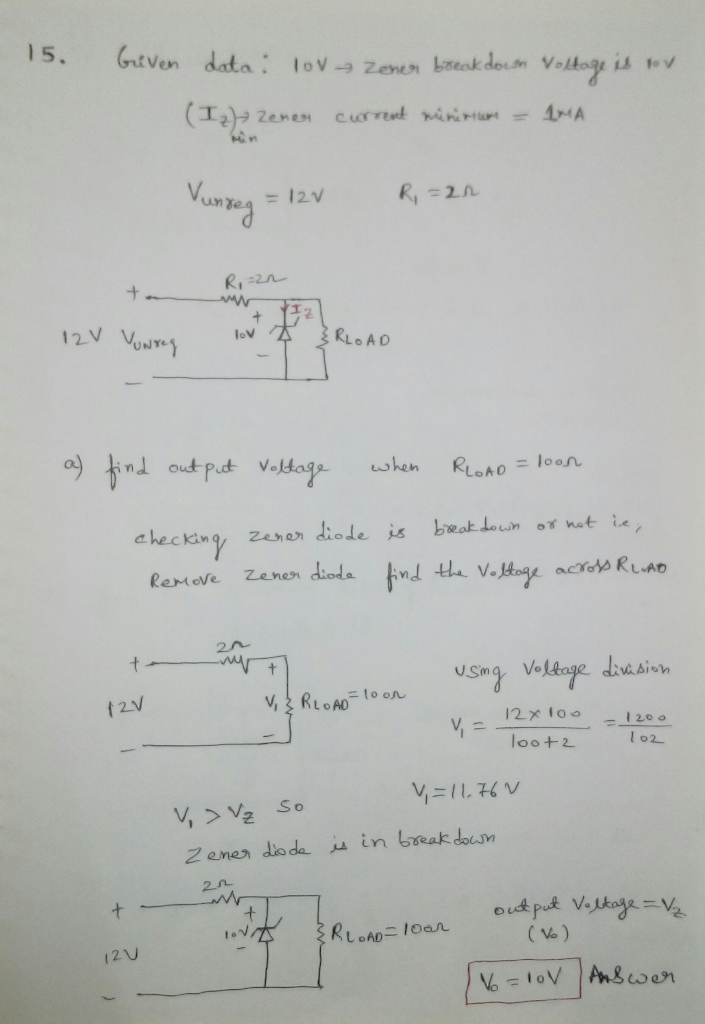 15. Given data: 10V → Zener breakdown Voltage is 10V
(Iz)min → Zener current minimum = 1mA
Vunreg = 12V R1 = 2Ω
R1=2Ω
+
Iz
+
12V Vunreg 10V RLOAD
-
-
a) find output Voltage when RLOAD = 100Ω
checking zener diode is breakdown or not ie,
Remove Zener diode find the Voltage across RLOAD
2Ω
+ +
using Voltage division
12V V1 RLOAD=100Ω
V1 = 12×100 / 100+2 = 1200 / 102
- -
V1=11.76V
V1 > Vz so
Zener diode is in breakdown
2Ω
+ +
output Voltage=Vz
10V RLOAD=100Ω (Vo)
12V -
-
Vo = 10V Answer